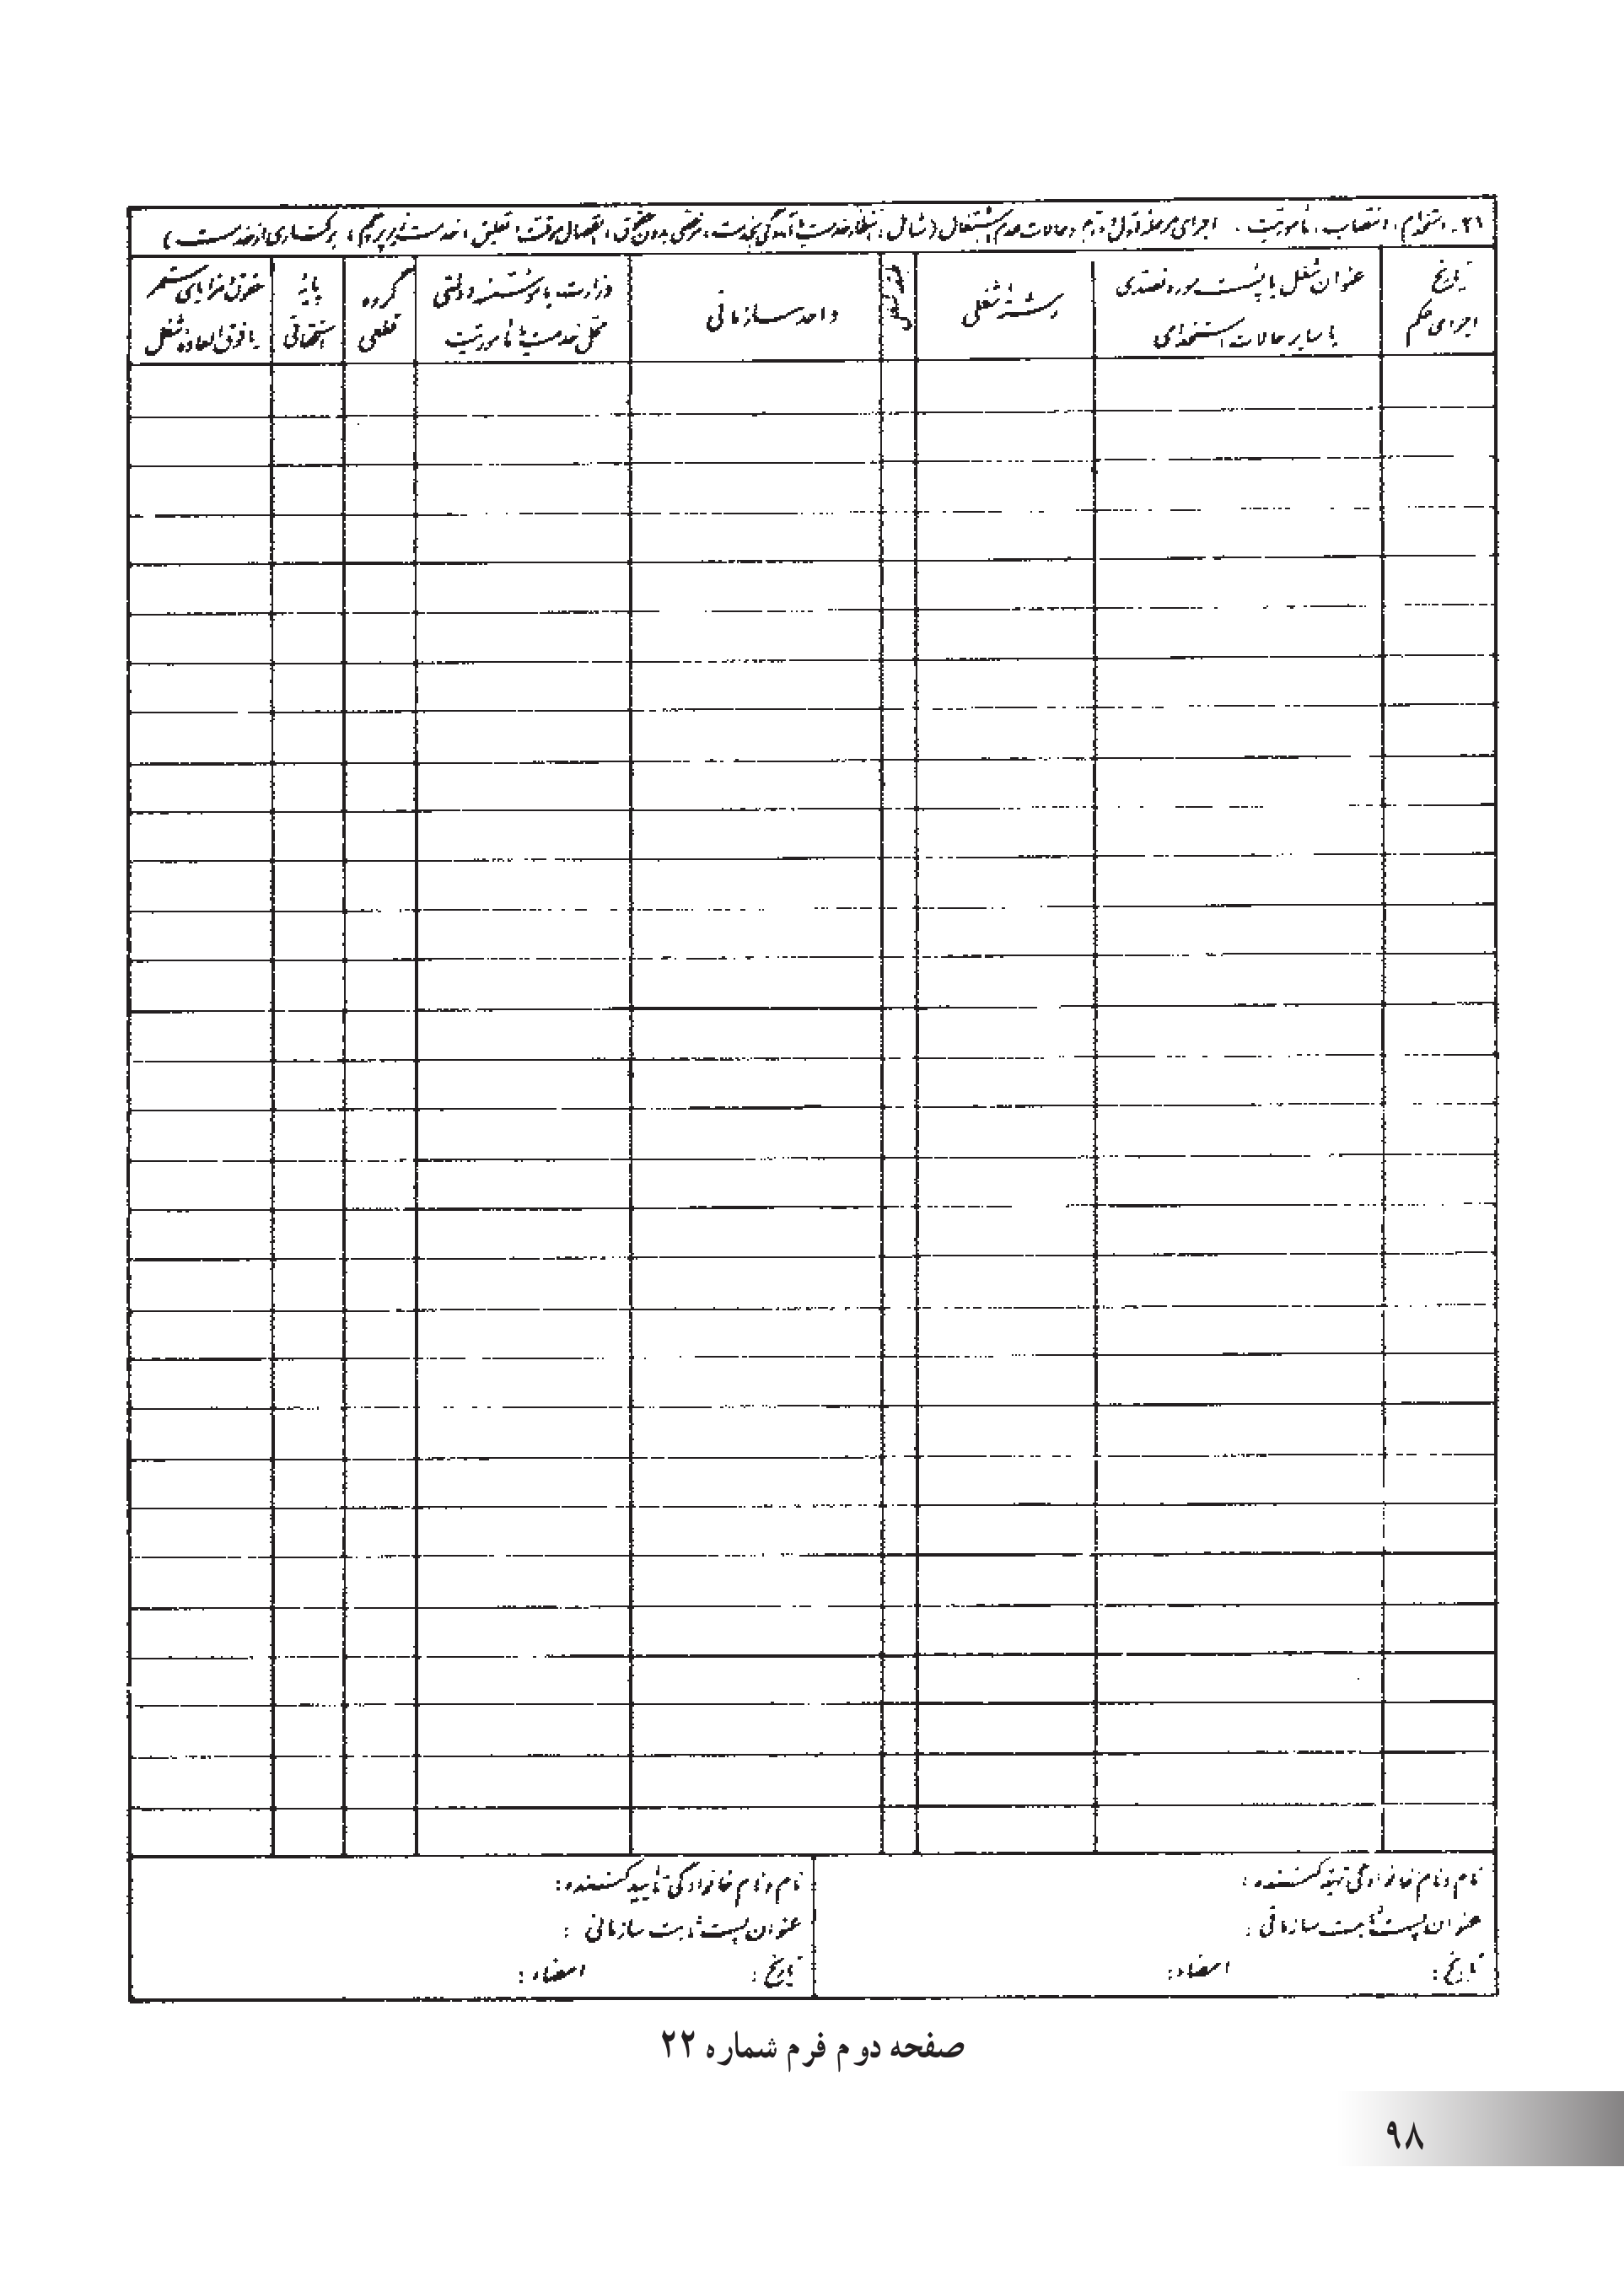 ۲۱ـ استخدام، انتصاب، مأموریت، اجرای مرحله اول و دوم و حالات عدم اشتغال (شامل: انتظار خدمت یا آمادگی بخدمت، مرخصی بدون حقوق، انفصال موقت، تعلیق، خدمت زیر پرچم، برکناری از خدمت)
تاریخ
اجرای حکم
عنوان شغل یا پست مورد تصدی
یا سایر حالات استخدامی
رشته شغلی
واحد سازمانی
وزارت یا مؤسسه دولتی
محل خدمت یا مأموریت
گروه
قطعی
پایه
استحقاقی
حقوق مزایای مستمر
یا فوق‌العاده شغل
نام و نام خانوادگی تهیه کننده:
عنوان پست ثابت سازمانی:
تاریخ: امضاء:
نام و نام خانوادگی تأیید کننده:
عنوان پست ثابت سازمانی:
تاریخ: امضاء:
صفحه دوم فرم شماره ۲۲
۹۸